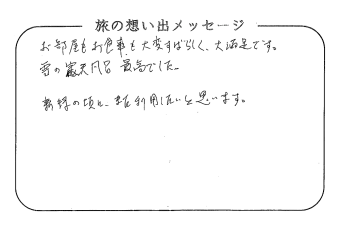 旅の想い出メッセージ
お部屋もお食事も大変すばらしく、大満足です。
雪の露天風呂 最高でした。
新緑の頃に、また利用したいと思います。